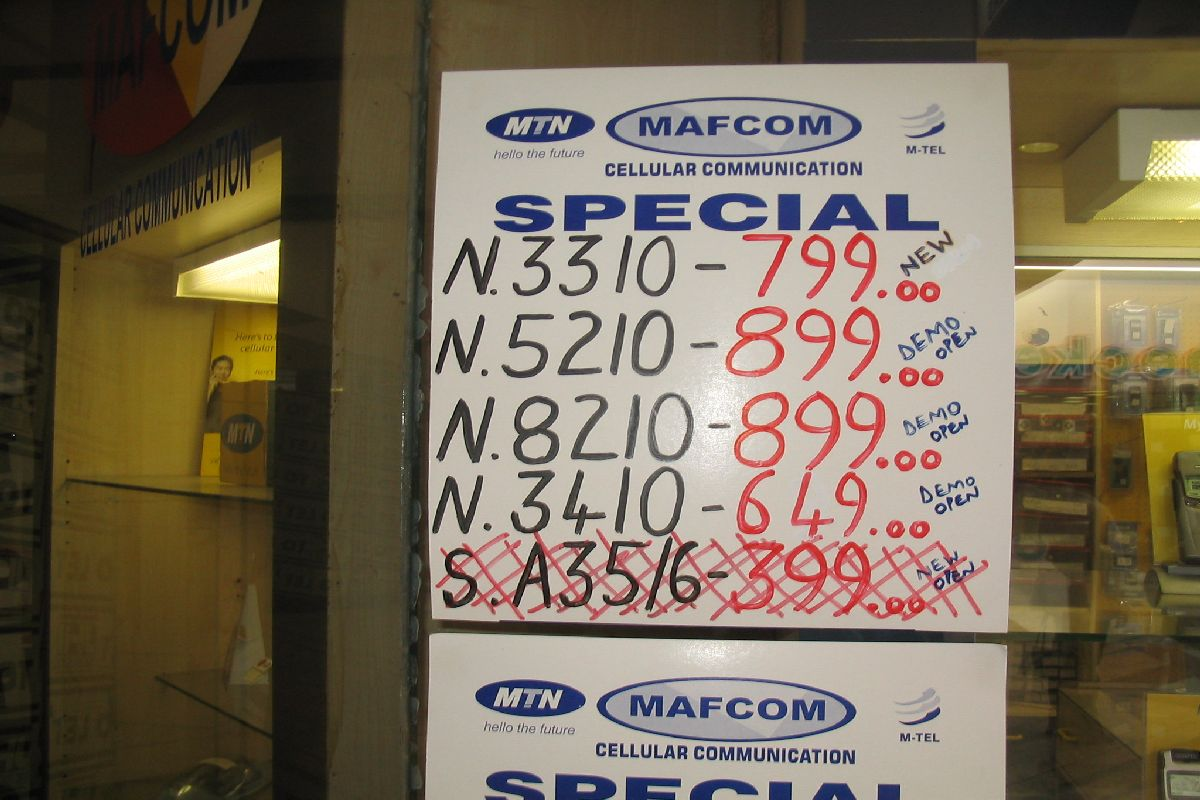 MAFCOM
CELLULAR COMMUNICATION
Here's to
cellular
MTN
MTN
hello the future
MAFCOM
CELLULAR COMMUNICATION
M-TEL
SPECIAL
N.3310 - 799.00 NEW
N.5210 - 899.00 DEMO OPEN
N.8210 - 899.00 DEMO OPEN
N.3410 - 649.00 DEMO OPEN
S.A35/6 - 399.00 NEW OPEN
MTN
hello the future
MAFCOM
CELLULAR COMMUNICATION
M-TEL
SPECIAL
My